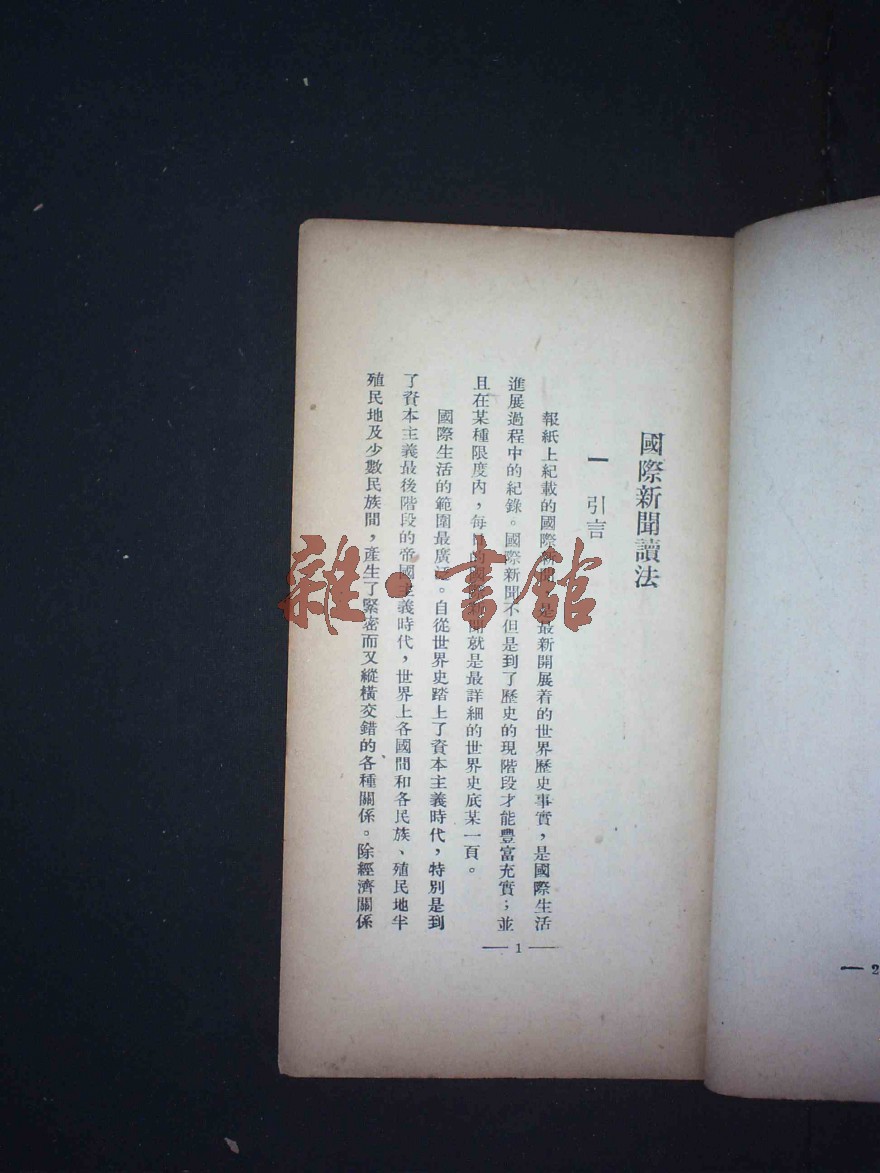 國際新聞讀法
一 引言
報紙上紀載的國際新聞是最新開展着的世界歷史事實，是國際生活
進展過程中的紀錄。國際新聞不但是到了歷史的現階段才能豐富充實；並
且在某種限度內，每日的國際新聞就是最詳細的世界史底某一頁。
國際生活的範圍最廣泛。自從世界史踏上了資本主義時代，特別是到
了資本主義最後階段的帝國主義時代，世界上各國間和各民族、殖民地半
殖民地及少數民族間，產生了緊密而又縱橫交錯的各種關係。除經濟關係
— 1 —
— 2
雜·書館